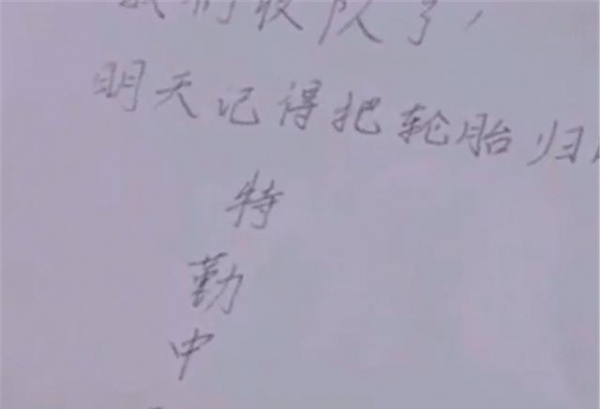 我们收队了，
明天记得把轮胎归
特
勤
中